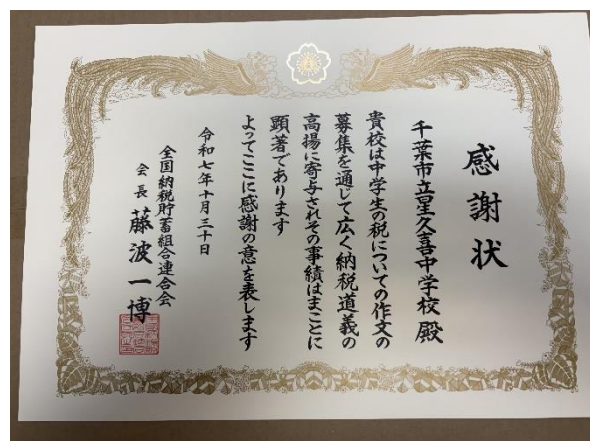 感謝状
千葉市立星久喜中学校 殿
貴校は中学生の税についての作文の
募集を通じて広く納税道義の
高揚に寄与されその事績はまことに
顕著であります
よってここに感謝の意を表します
令和七年十月三十日
全国納税貯蓄組合連合会
会長 藤波一博